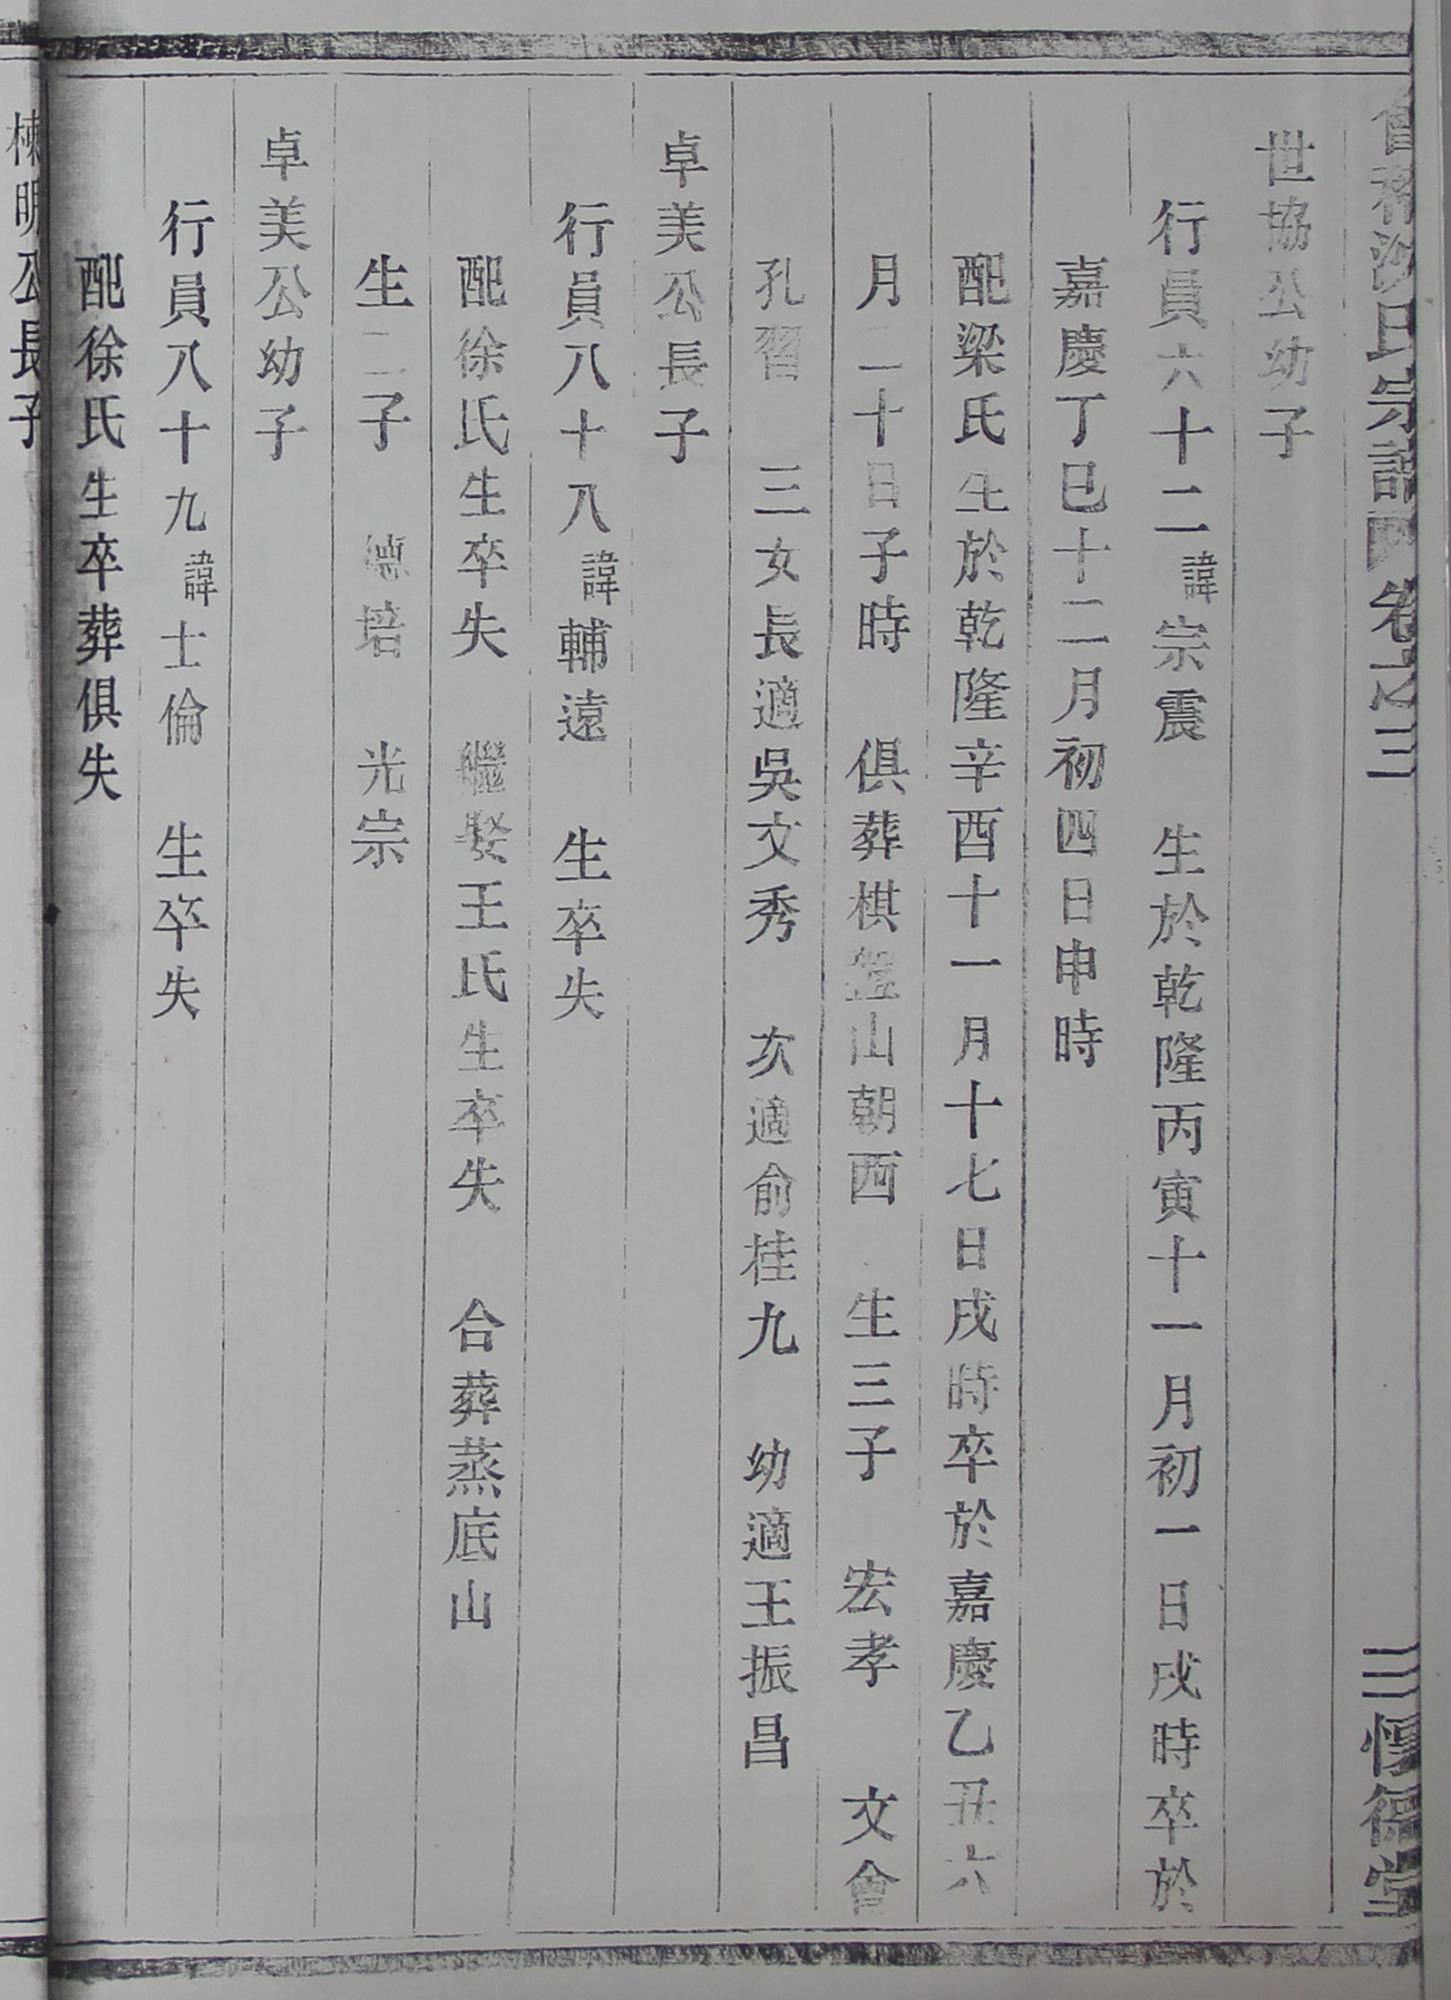 氏宗譜 卷之三 三 惇德堂
世協公幼子
行員六十二諱宗震 生於乾隆丙寅十一月初一日戌時卒於
嘉慶丁巳十二月初四日申時
配梁氏生於乾隆辛酉十一月十七日戌時卒於嘉慶乙丑六
月二十日子時 俱葬棋盤山朝西 生三子 宏孝 文會
孔習 三女長適吳文秀 次適俞桂九 幼適王振昌
卓美公長子
行員八十八諱輔遠 生卒失
配徐氏生卒失 繼娶王氏生卒失 合葬蒸底山
生二子 德培 光宗
卓美公幼子
行員八十九諱士倫 生卒失
配徐氏生卒葬俱失
棟明公長子